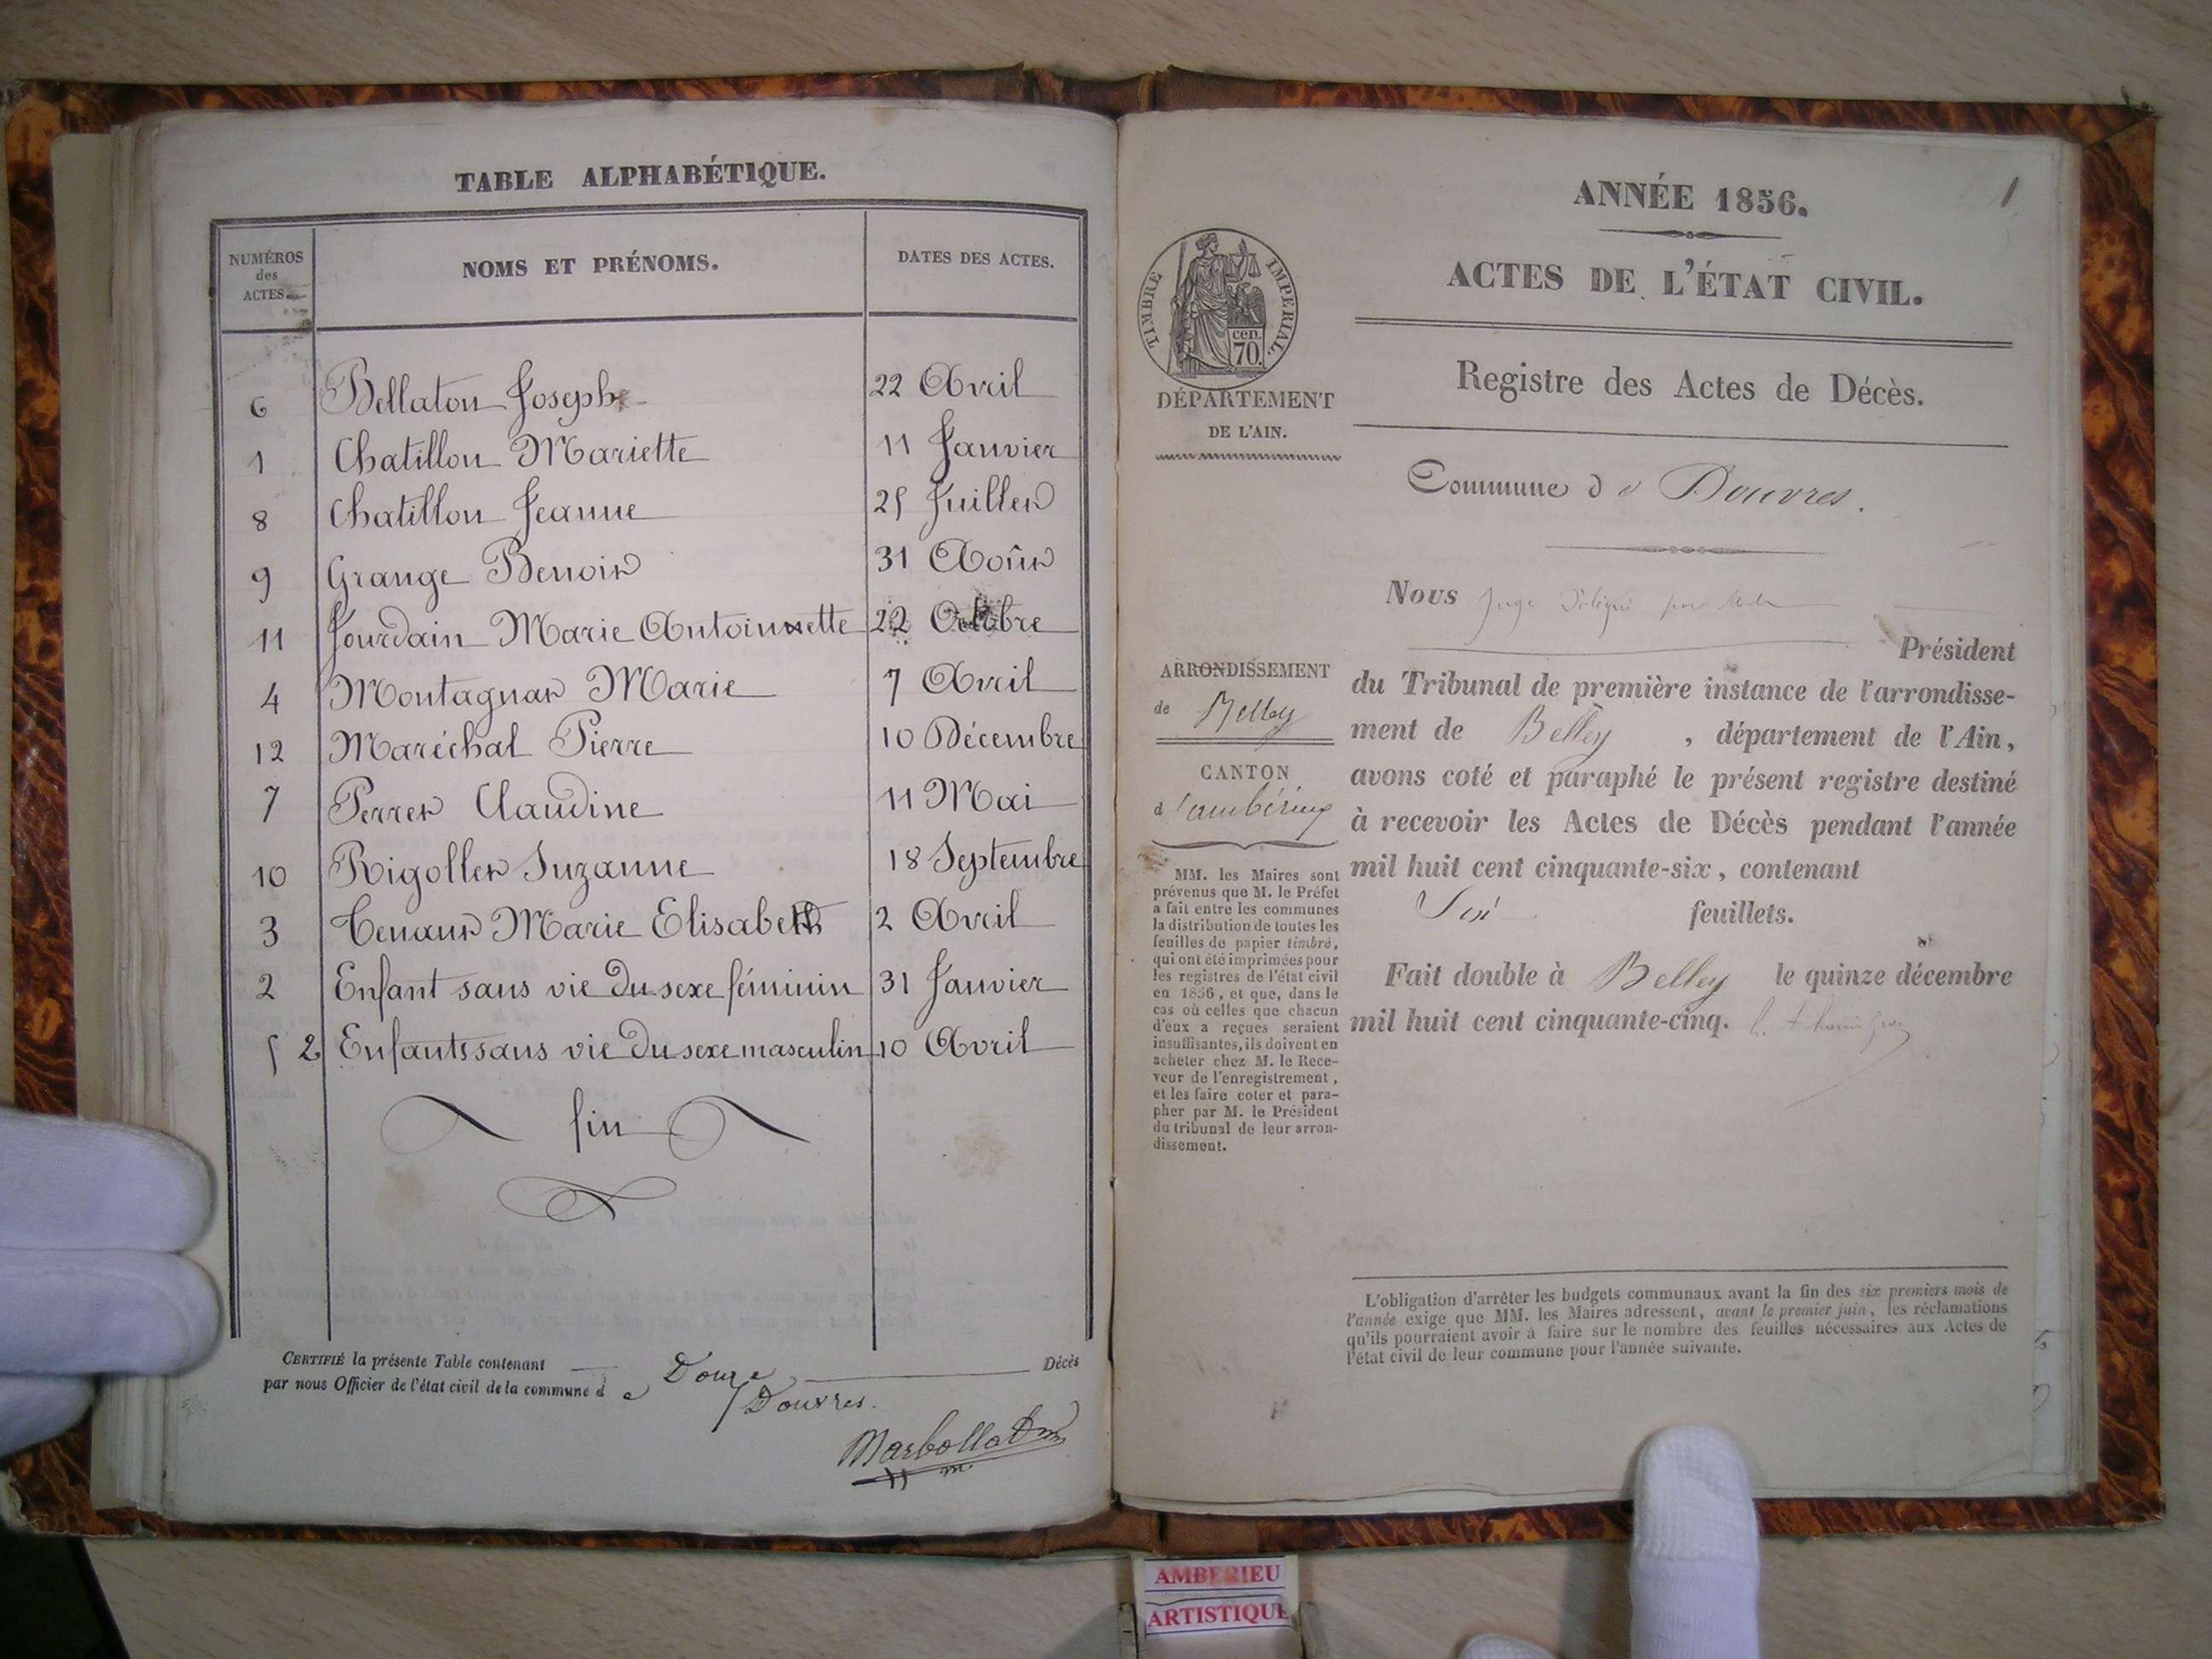 TABLE ALPHABÉTIQUE.
NUMÉROS des ACTES NOMS ET PRÉNOMS. DATES DES ACTES.
6 Bellaton Joseph 22 Avril
1 Chatillon Mariette 11 Janvier
8 Chatillon Jeanne 25 Juillet
9 Grange Benoit 31 Août
11 Jourdain Marie Antoinette 22 Octobre
4 Montagnat Marie 7 Avril
12 Maréchal Pierre 10 Décembre
7 Perret Claudine 11 Mai
10 Rigollet Suzanne 18 Septembre
3 Tenant Marie Elisabeth 2 Avril
2 Enfant sans vie du sexe féminin 31 Janvier
5 2 Enfants sans vie du sexe masculin 10 Avril
fin
CERTIFIÉ la présente Table contenant Douze Décès
par nous Officier de l'état civil de la commune de Douvres.
Marbollat
ANNÉE 1856. 1
ACTES DE L'ÉTAT CIVIL.
Registre des Actes de Décès.
TIMBRE IMPERIAL.
cen.
70.
DÉPARTEMENT
DE L'AIN.
Commune de Douvres.
Nous Juge délégué pour
Président
du Tribunal de première instance de l'arrondisse-
ment de Belley, département de l'Ain,
avons coté et paraphé le présent registre destiné
à recevoir les Actes de Décès pendant l'année
mil huit cent cinquante-six, contenant
Six feuillets.
Fait double à Belley le quinze décembre
mil huit cent cinquante-cinq.
ARRONDISSEMENT
de Belley
CANTON
d'ambérieux
MM. les Maires sont
prévenus que M. le Préfet
a fait entre les communes
la distribution de toutes les
feuilles de papier timbré,
qui ont été imprimées pour
les registres de l'état civil
en 1856, et que, dans le
cas où celles que chacun
d'eux a reçues seraient
insuffisantes, ils doivent en
acheter chez M. le Rece-
veur de l'enregistrement,
et les faire coter et para-
pher par M. le Président
du tribunal de leur arron-
dissement.
L'obligation d'arrêter les budgets communaux avant la fin des six premiers mois de
l'année exige que MM. les Maires adressent, avant le premier juin, les réclamations
qu'ils pourraient avoir à faire sur le nombre des feuilles nécessaires aux Actes de
l'état civil de leur commune pour l'année suivante.
AMBERIEU
ARTISTIQUE